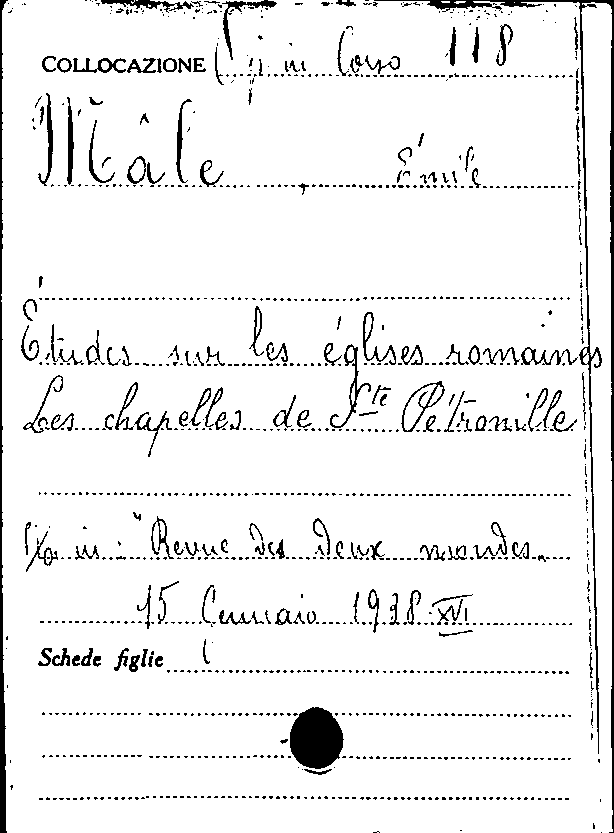 COLLOCAZIONE in Corso 118
Mâle, Émile
Études sur les églises romaines
Les chapelles de Ste Pétronille
in: "Revue des deux mondes"
15 Gennaio 1938 XVI
Schede figlie